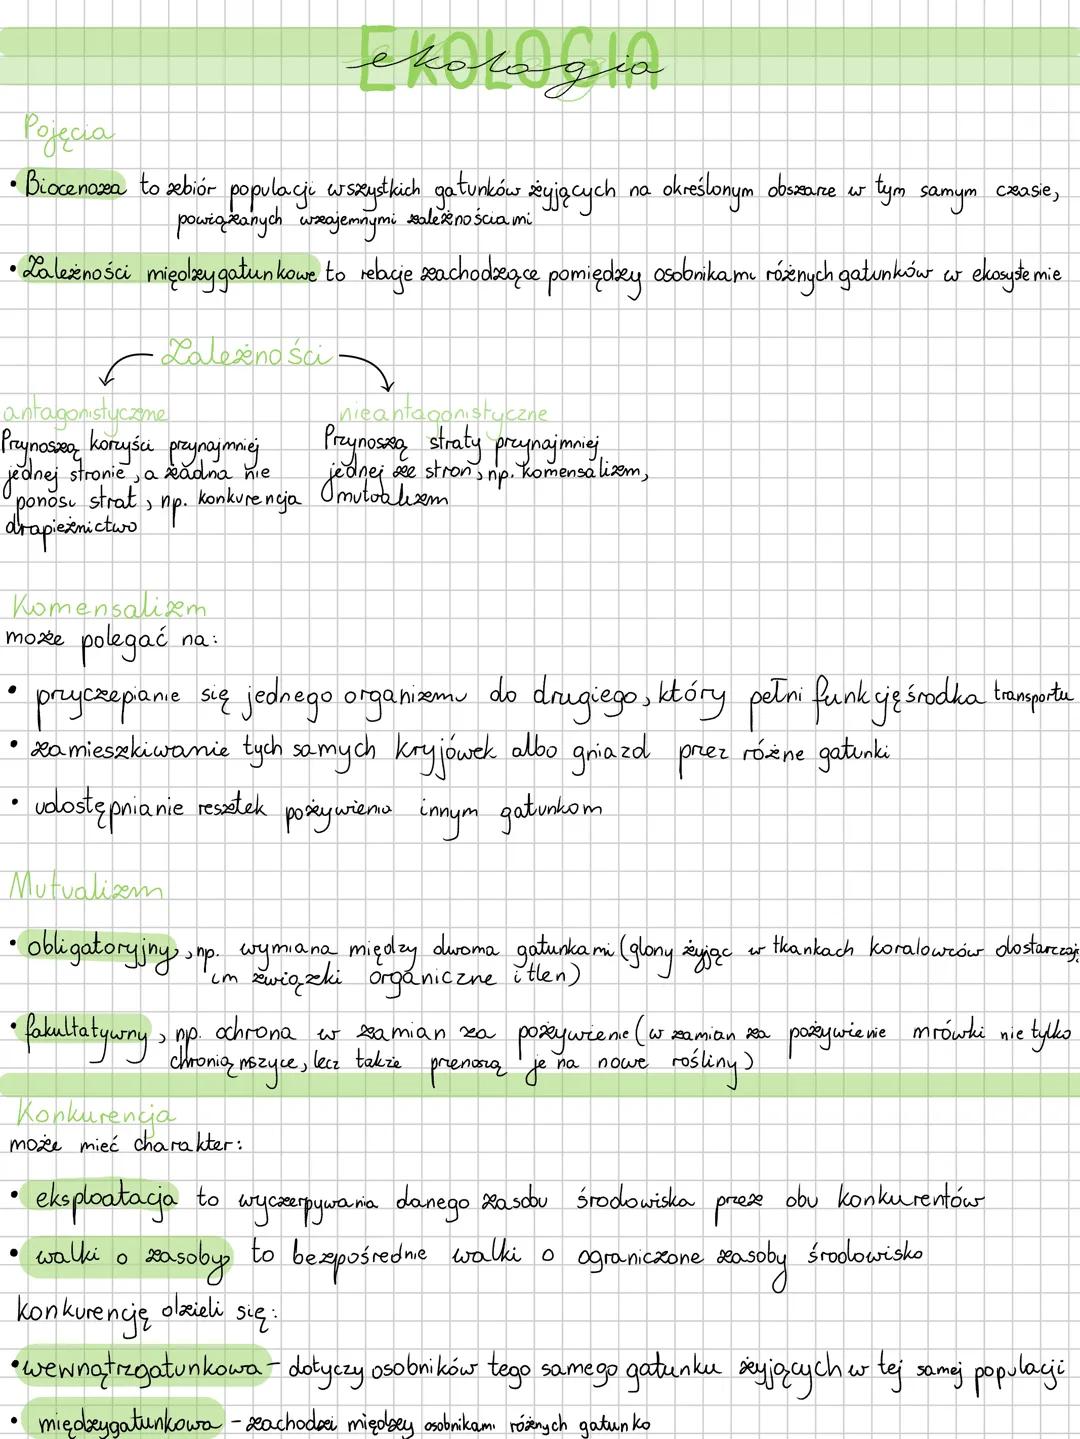 EKOLOGIA
ekologia
Pojęcia
• Biocenoza to zebiór populacji wszystkich gatunków żyjących na określonym obszarze w tym samym czasie,
powiązanych wzajemnymi zależnościami
• Zależności międzygatunkowe to relacje zachodzące pomiędzy osobnikami różnych gatunków w ekosystemie
Zależności
antagonistyczne
nieantagonistyczne
Przynoszą korzyści przynajmniej
jednej stronie, a żadna nie
ponosi strat, np. konkurencja
drapieżnictwo
Przynoszą straty przynajmniej
jednej ze stron, np. komensalizm,
mutualizm
Komensalizm
może polegać na:
• przyczepianie się jednego organizmu do drugiego, który pełni funkcję środka transportu
• zamieszkiwanie tych samych kryjówek albo gniazd przez różne gatunki
• udostępnianie resztek pożywienia innym gatunkom
Mutualizm
• obligatoryjny, np. wymiana między dwoma gatunkami (glony żyjąc w tkankach koralowców dostarczają
im związki organiczne i tlen)
• fakultatywny, np. ochrona w zamian za pożywienie (w zamian za pożywienie mrówki nie tylko
chronią mszyce, lecz także przenoszą je na nowe rośliny)
Konkurencja
może mieć charakter:
• eksploatacja to wyczerpywania danego zasobu środowiska przez obu konkurentów
• walki o zasoby to bezpośrednie walki o ograniczone zasoby środowisko
konkurencję dzieli się:
• wewnątrzgatunkowa - dotyczy osobników tego samego gatunku żyjących w tej samej populacji
• międzygatunkowa - zachodzi między osobnikami różnych gatunko